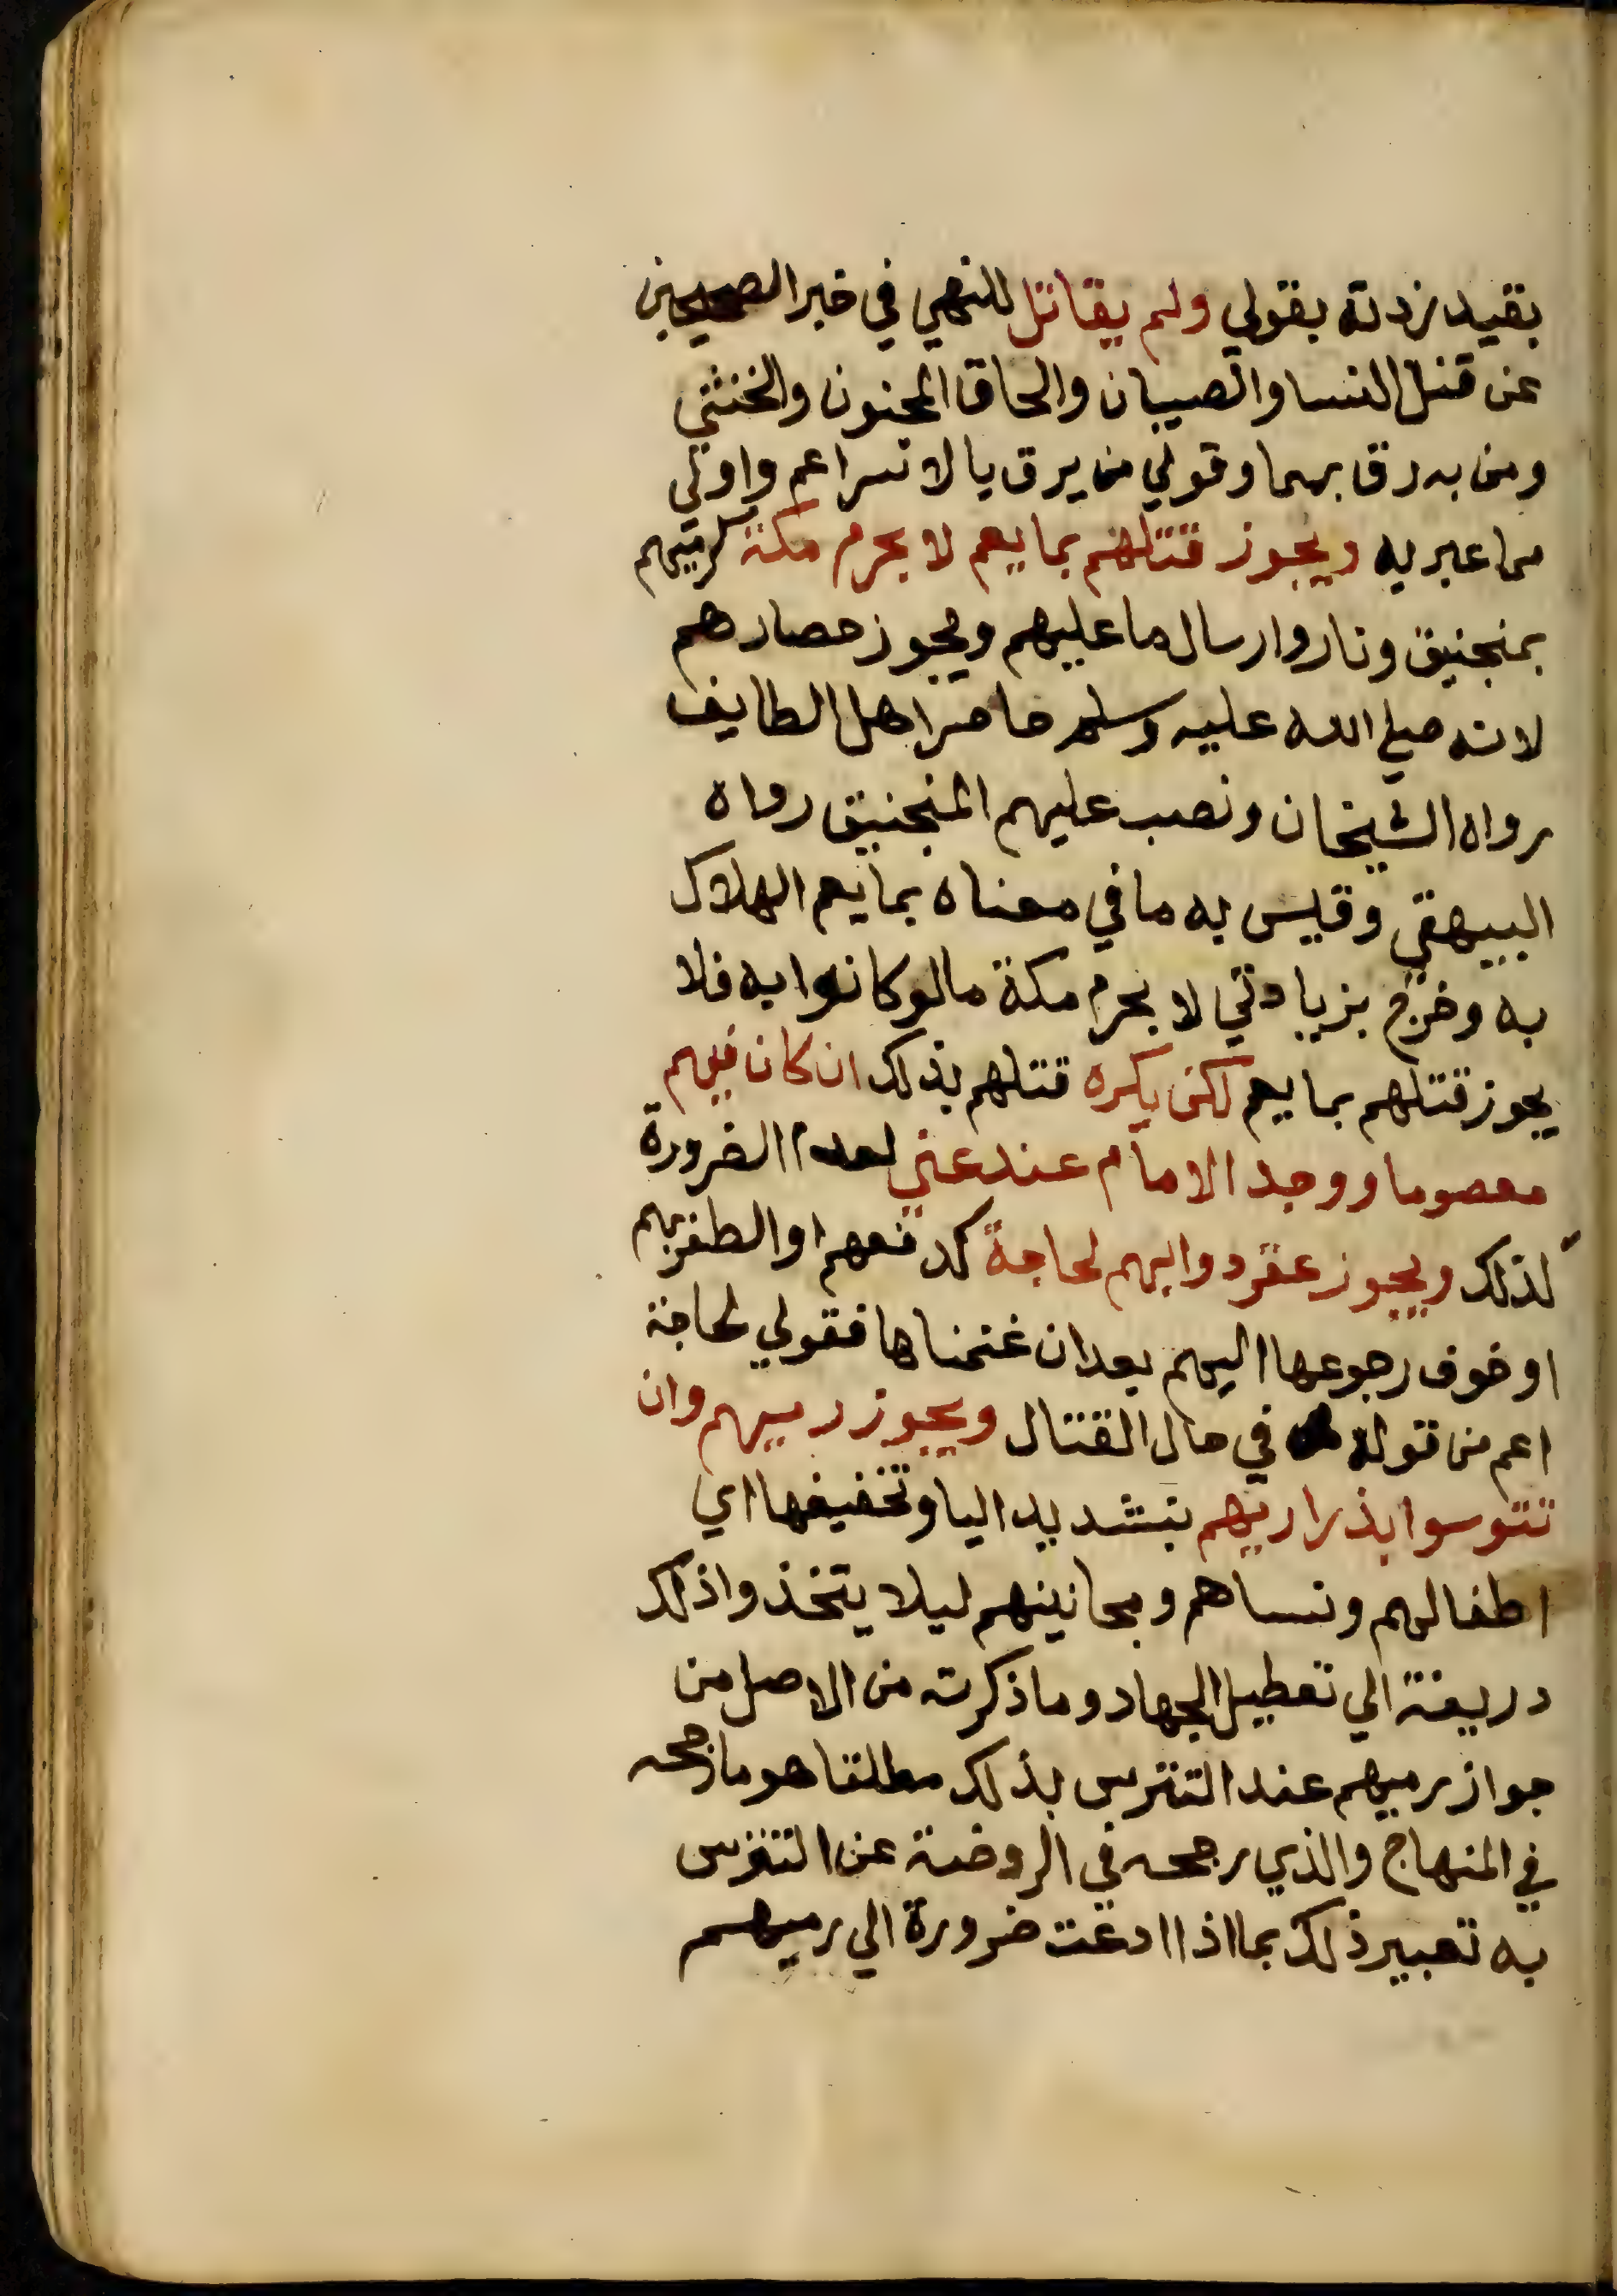 بقيد زدته بقولي ولم يقاتل للنهي في خبر الصحيحين
عن قتل النسا والصبيان والحاق المجنون والخنثي
ومن به رق بهما وقولي من يرق بالاسر اعم واولي
مما عبر به ويجوز قتلهم بما يعم لا بحرم مكة كرميهم
بمنجنيق ونار وارسال ما عليهم ويجوز حصارهم
لانه صلي الله عليه وسلم حاصر اهل الطايف
رواه الشيخان ونصب عليهم المنجنيق رواه
البيهقي وقيس به ما في معناه بما يعم الهلاك
به وخرج بزيادتي لا بحرم مكة ما لو كانوا به فلا
يجوز قتلهم بما يعم لكن يكره قتلهم بذلك ان كان فيهم
معصوما ووجد الامام عند عني الضرورة
لذلك ويجوز عقر دوابهم لحاجة كدفعهم او الظفر بهم
او خوف رجوعها اليهم بعد ان غنمناها فقولي لحاجة
اعم من قوله في حال القتال ويجوز رميهم وان
تتوسوا بذراريهم بتشديد اليا وتخفيفها اي
اطفالهم ونساهم ومجانينهم ليلا يتخذوا ذلك
دريعة الي تعطيل الجهاد وما ذكرته من الاصل من
جواز رميهم عند التترس بذلك مطلقا هو ما رجحه
في المنهاج والذي رجحه في الروضة عن التترس
به تعبير ذلك بما اذا ادعت ضرورة الي رميهم